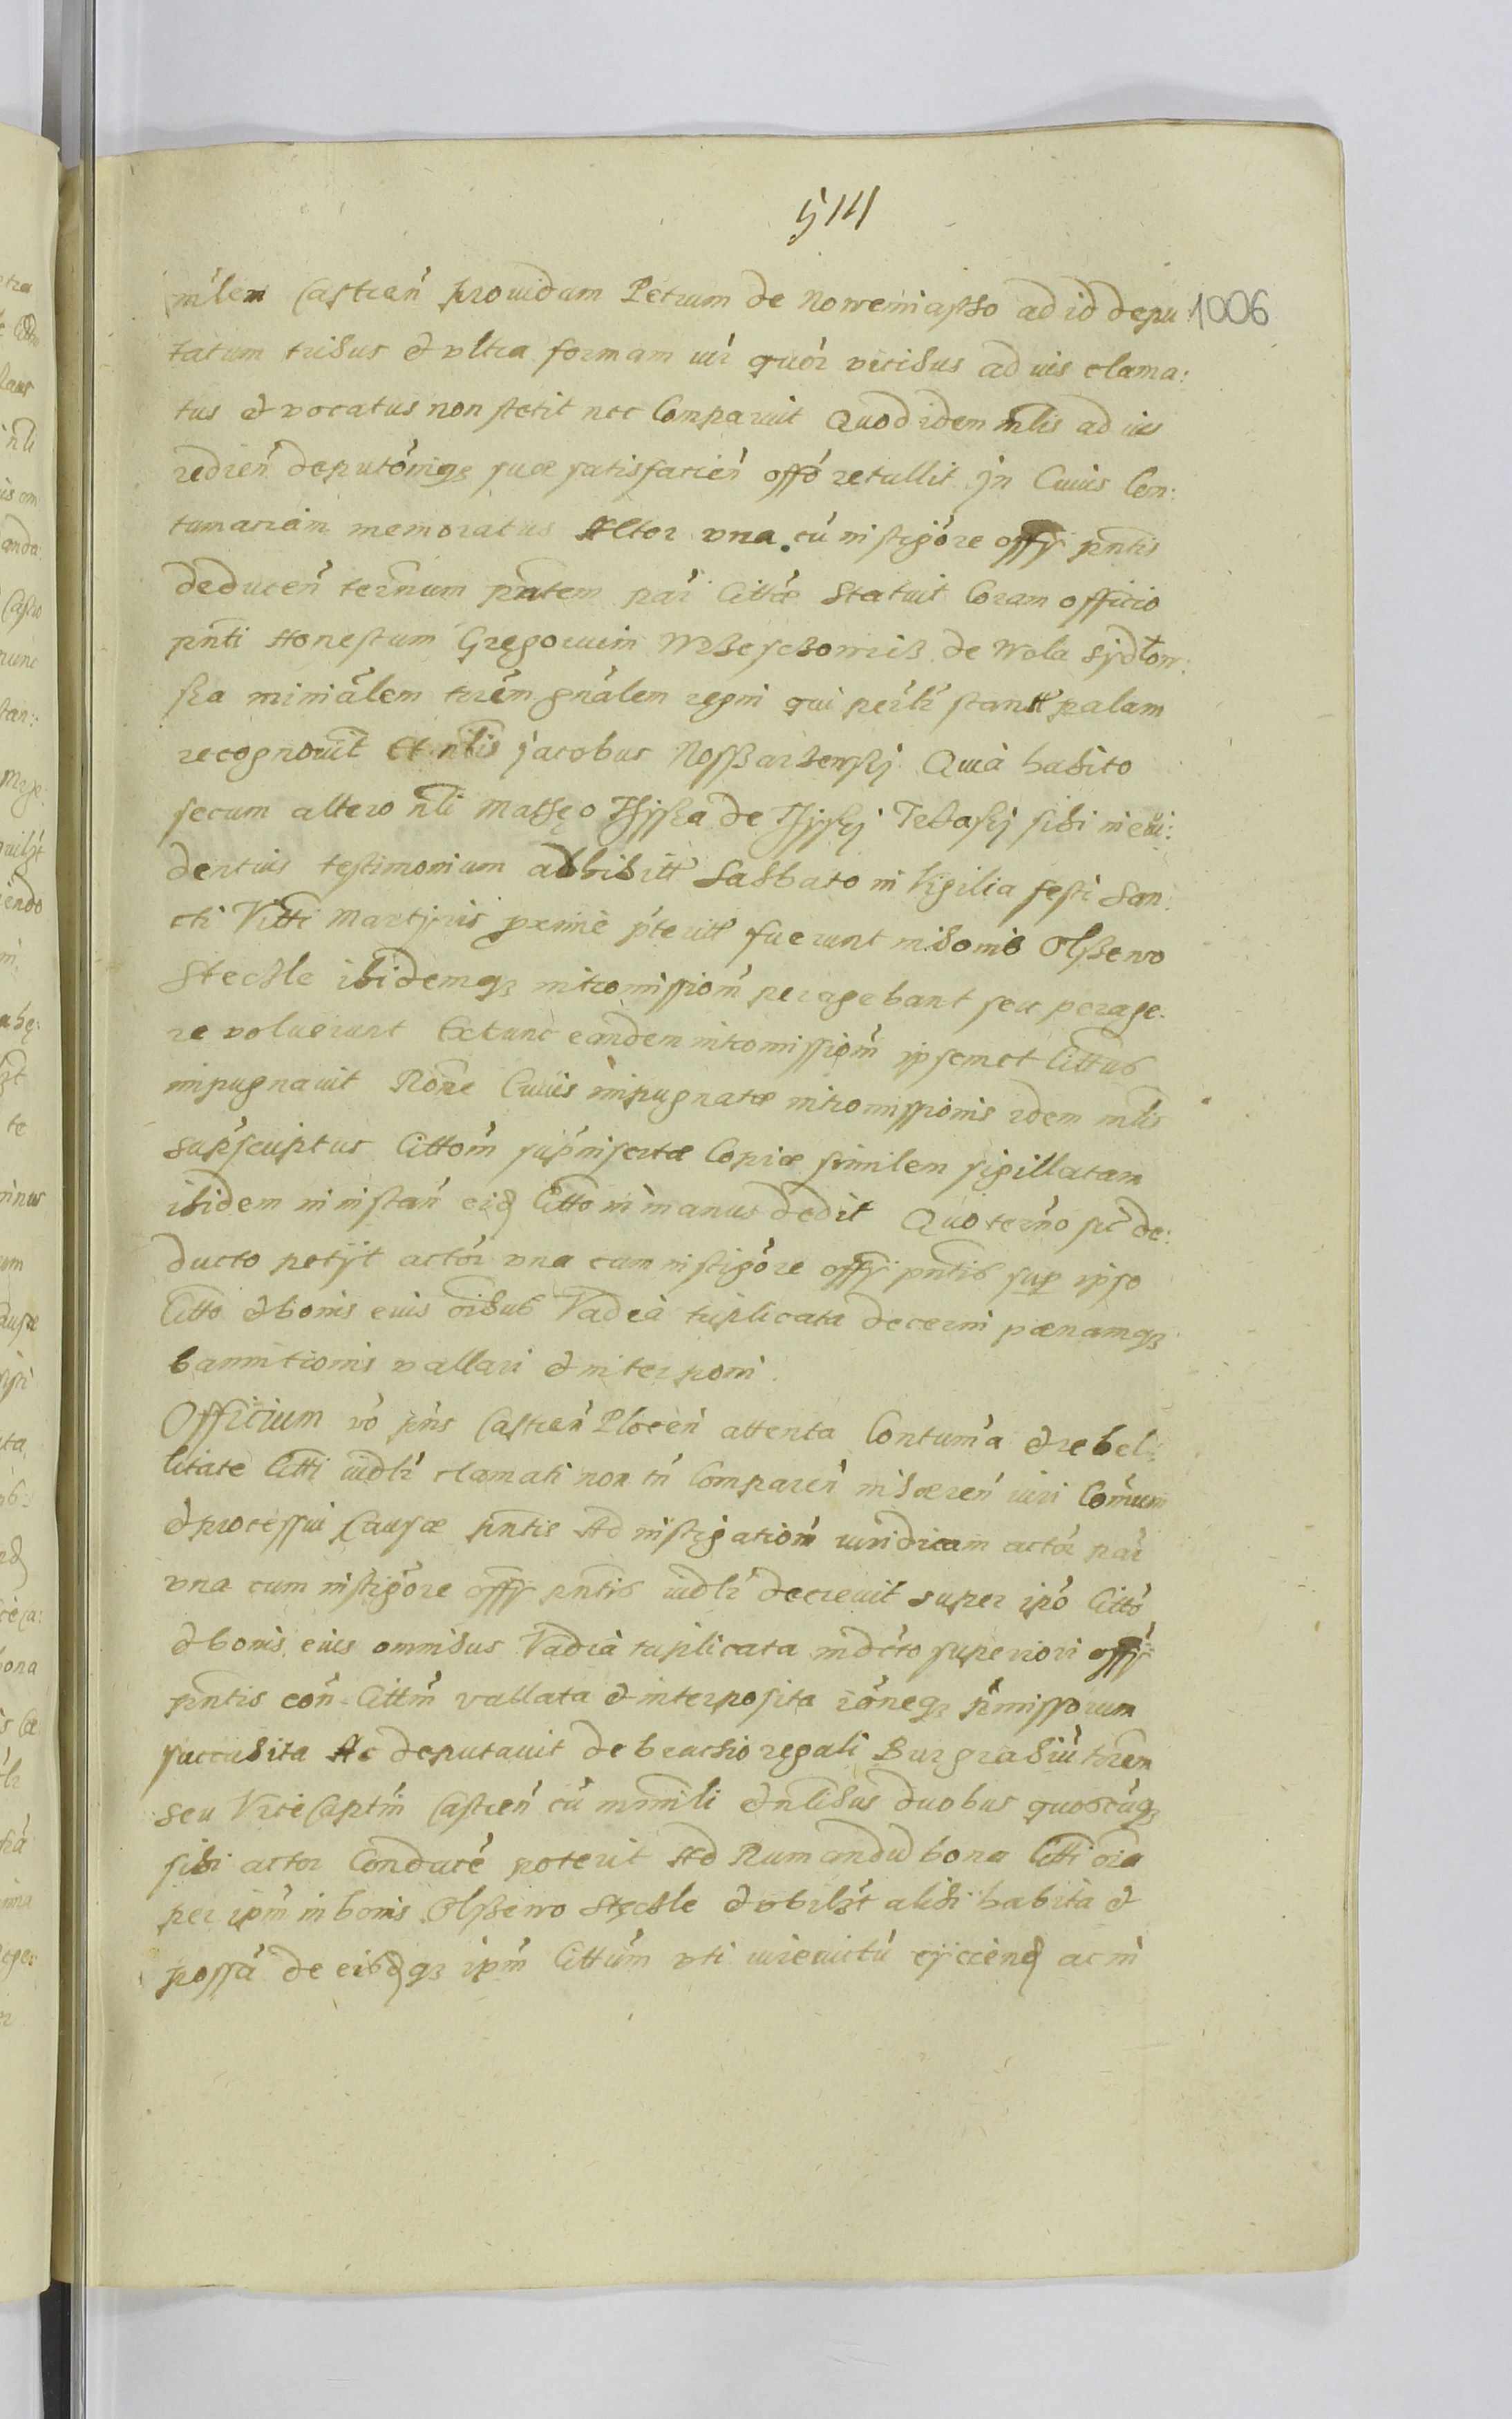 514
1006
mlem Castren̄ prouidum Petrum de Nowemiasto ad id depu
tatum tribus et vltra formam iur̄ quor̄ vicibus ad ius clama:
tus et vocatus non stetit nec Comparuit Quod idem mlis ad ius
redien̄ deputōniq3 suæ satisfacien̄ offō retullit jn Cuius Con:
tumaciam memoratus Actor vna cū instigōre offÿ pn̄tis
deducen̄ tern̄um pn̄tem par̄ Cittæ statuit Coram officio
pn̄ti Honestum Gregorium de Wola Sÿdłow:
ska miniālem trēm gn̄alem regni qui per̄lr̄ stans palam
recognouit Et nlis jacobus Quia habito
secum altero nli Mathęo Thÿska de Thÿskj sibi in eui:
dentius testimonium adhibitt Sabbato in Vigilia festi San:
cti Vitti Martÿris pxime pterit fuerunt in bonis Olssewo
Stechle ibidemq3 intromissiom̄ peragebant seu perage:
re voluerunt Extunc eandem intromissiom̄ ipsemet Cittus
impugnauit Rōne Cuius impugnatæ intromissionis idem mlis
suprscriptus Cittom̄ supr̄insertæ Copiæ similem sigillatam
ibidem in instan̄ eid Citto in manus dedit Quo tern̄o sic de:
ducto petÿt actōr vna cum instigōre offÿ pn̄tis sup ipso
Citto et bonis eius oībus Vadia triplicata decerni pænamq3
bannitionis vallari et interponi.
Officium vō pn̄s Castren̄ Plocen̄ attenta Contum̄a et rebel:
litate Citti iudlr̄ clamati non tn̄ Comparen̄ inhæren̄ iuri Comūni
et processui Causæ pn̄tis Ad instigatiom̄ iuridicam actōr par̄
vna cum instigōre offÿ pn̄tis iudlr̄ decreuit super ipō Cittō
et bonis eius omnibus Vadia triplicata in dēto superiori offÿ
pn̄tis con̄ Cittm̄ vallata et interposita rōneq3 prmissorum
succubita Ac deputauit de brachio regali Burgrabiū trem
seu Vice Captm̄ Castren̄ cū min̄li et nlibus duobus quoscūq3
sibi actor Conducē poterit Ad Rumandū bona Citti oīa
per ipm̄ in bonis Olssewo Stechle et vbilz̄t alibi habita et
possā de eisdq3 ipm̄ Cittūm vti iureuictū eÿciend ac in